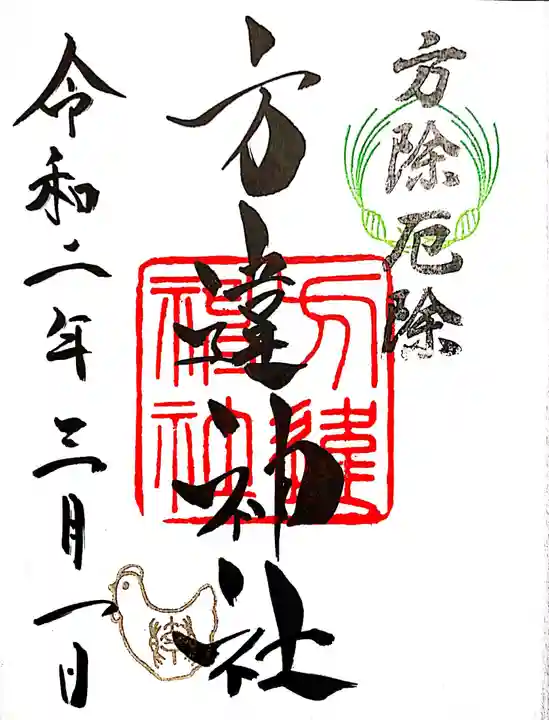 方除厄除
方違神社
方違
神社
令和二年三月一日